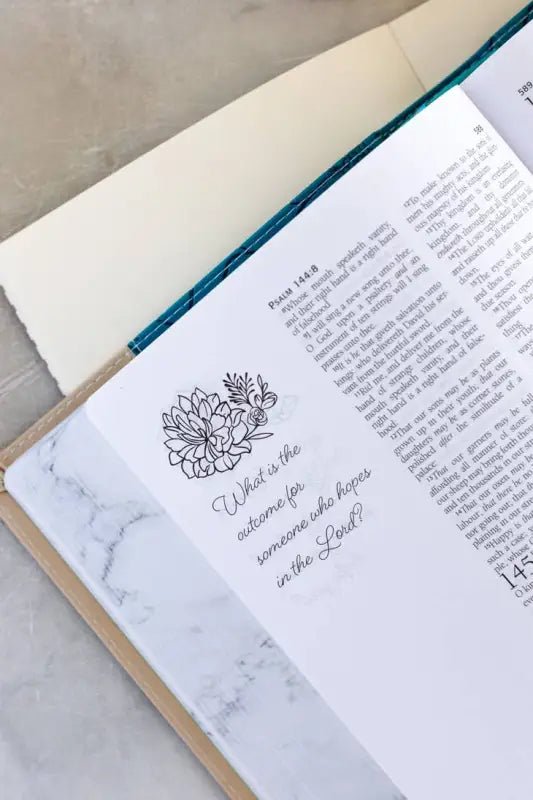 589
PSALM 144:8
⁸Whose mouth speaketh vanity,
and their right hand is a right hand
of falsehood.
⁹I will sing a new song unto thee,
O God: upon a psaltery and an
instrument of ten strings will I sing
praises unto thee.
¹⁰It is he that giveth salvation unto
kings: who delivereth David his ser-
vant from the hurtful sword.
¹¹Rid me, and deliver me from the
hand of strange children, whose
mouth speaketh vanity, and their
right hand is a right hand of false-
hood:
¹²That our sons may be as plants
grown up in their youth; that our
daughters may be as corner stones,
polished after the similitude of a
palace:
¹³That our garners may be full,
affording all manner of store:
our sheep may bring forth
and ten thousands in our
¹⁴That our oxen may be
labour; that there be no
nor going out; that
plaining in our
¹⁵Happy is that
such a case:
ple, whose
145
To make known to the
men his mighty acts, and the
ous majesty of his kingdom.
¹³Thy kingdom is an
kingdom, and thy
endureth throughout all
¹⁴The LORD upholdeth all
and raiseth up all those that be
¹⁵The eyes of all wait
and thou givest
due season.
¹⁶Thou
satisfiest the
thing
What is the
outcome for
someone who hopes
in the Lord?